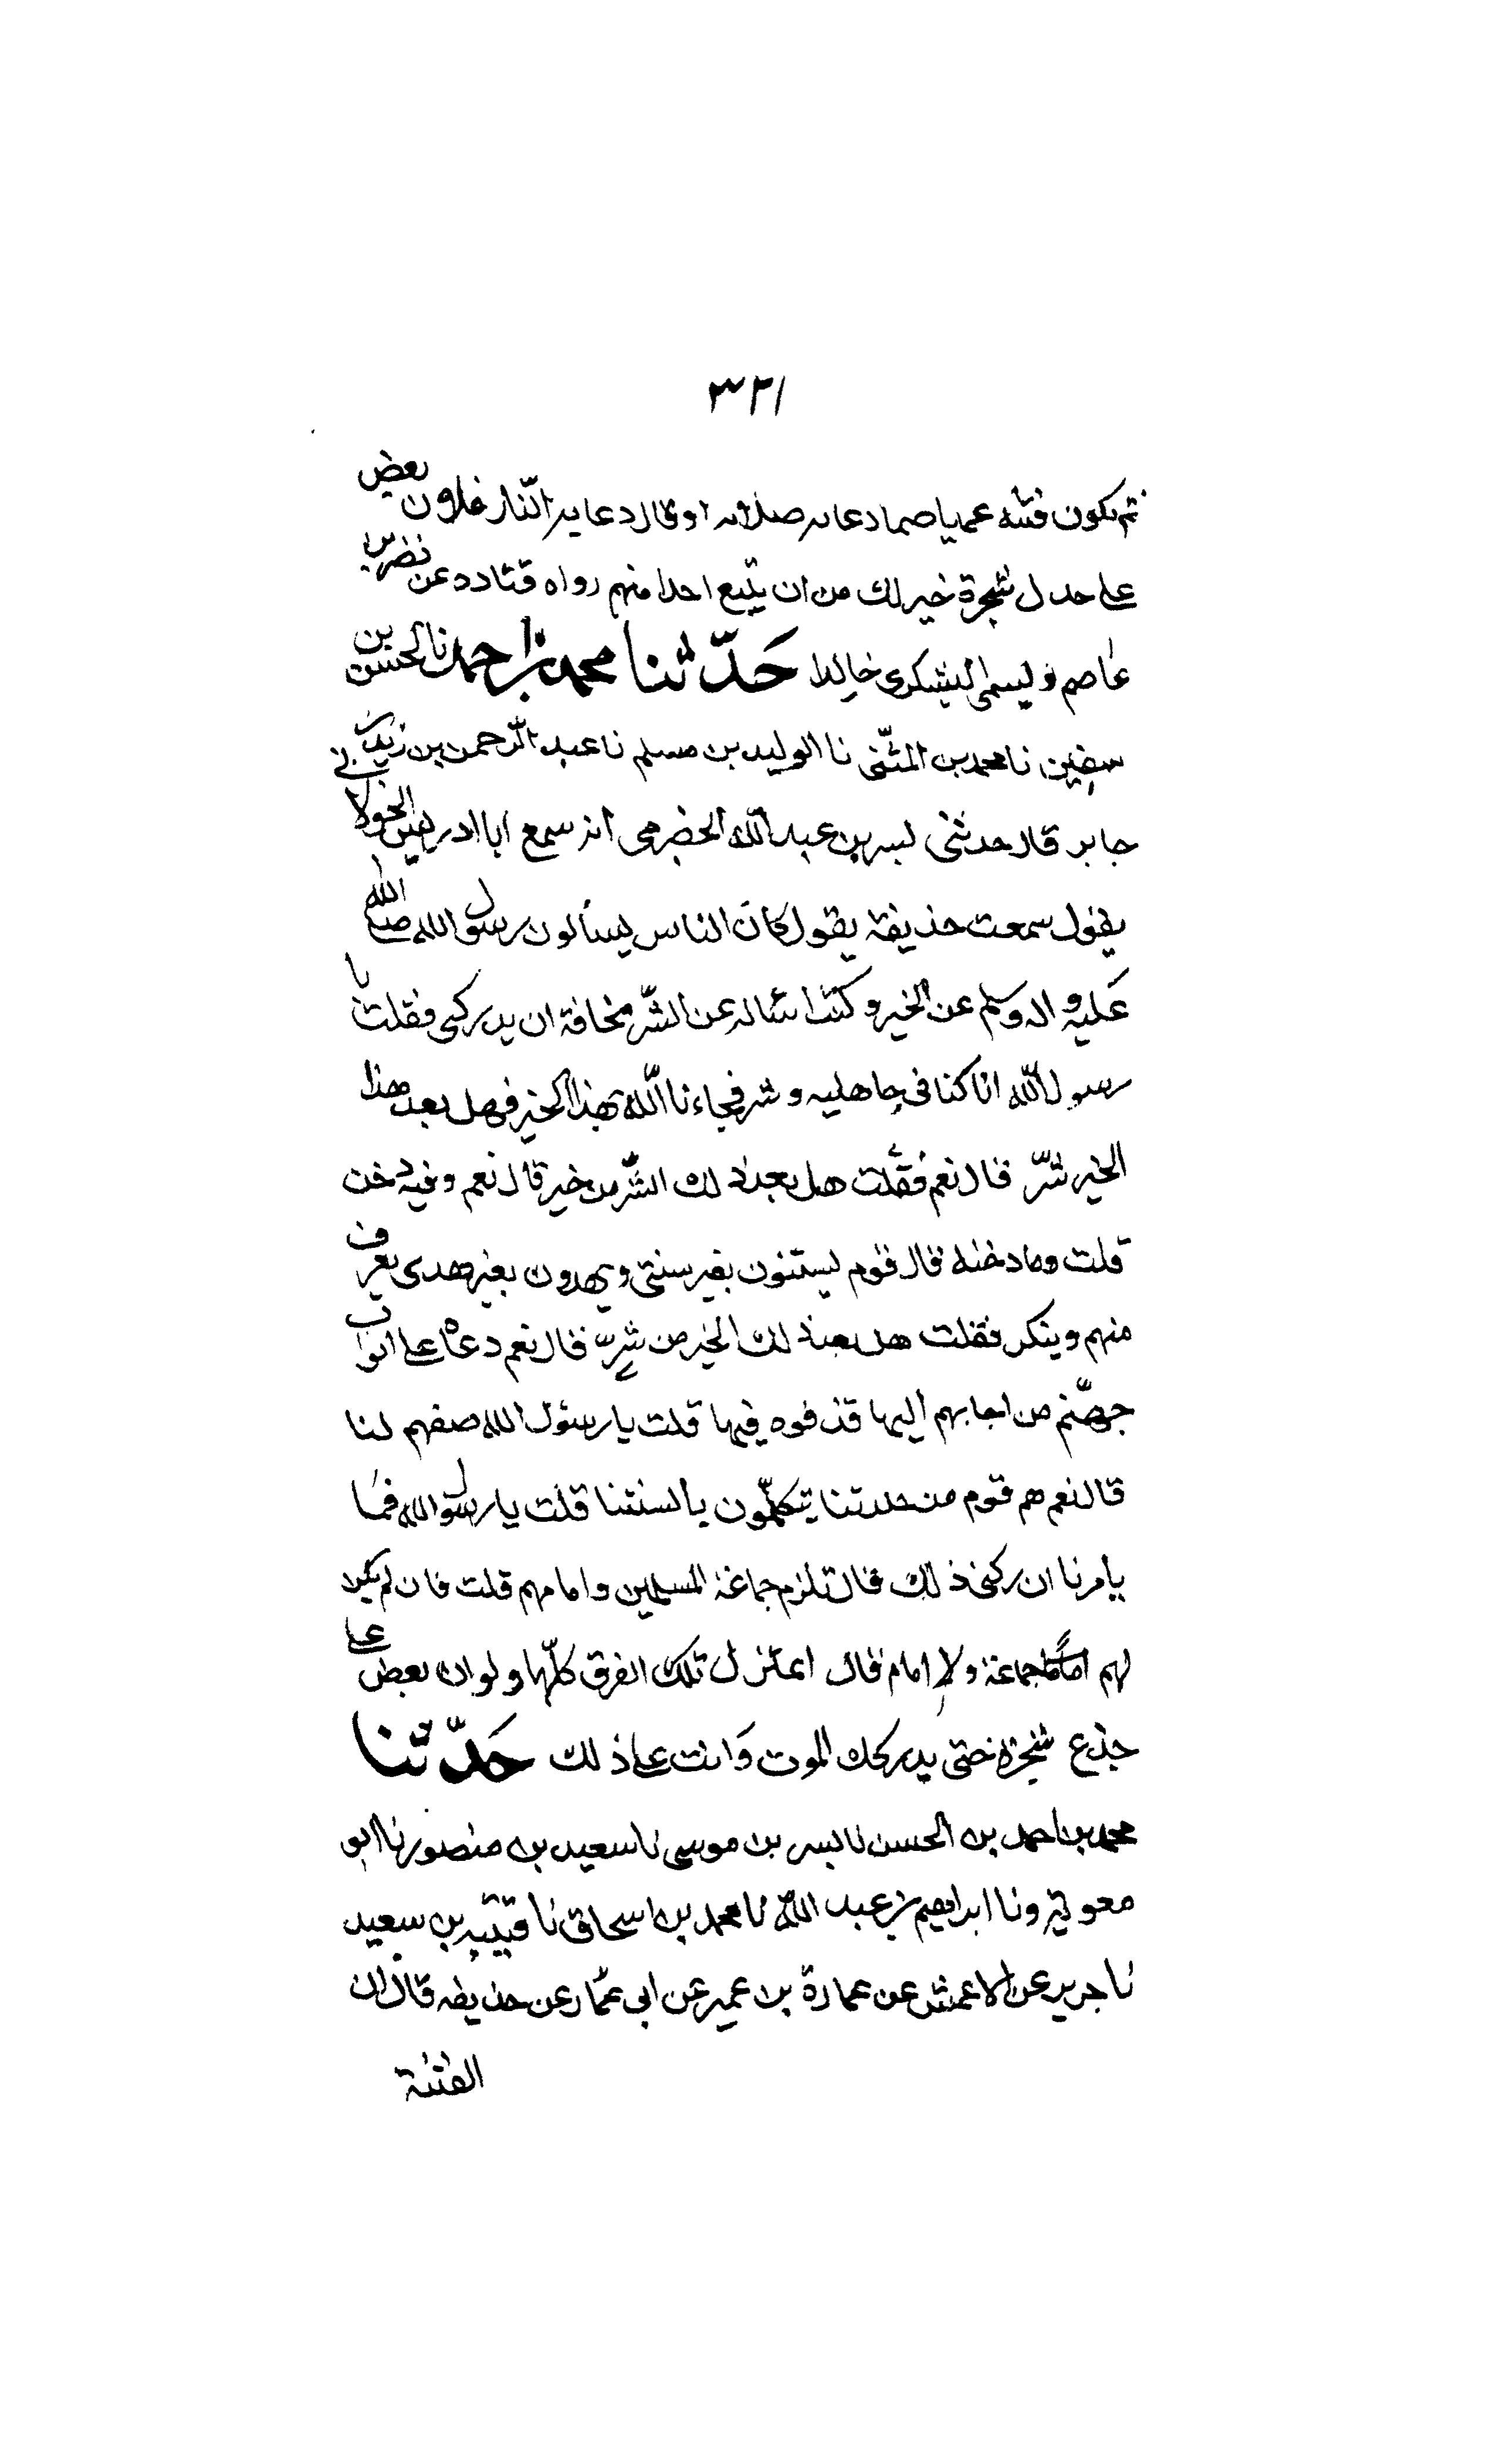 ٣٢١
ثم يكون فتنه عميا صما دعاته ضلاله او قال دعايه النار فلان بعض
على جدل شجرة خير لك من ان يتبع احدا منهم رواه قتادة عن نضر بن
عاصم و ليسمى اليشكرى خالدا حَدّثنا محمد بن احمد نا الحسن بن
سفين نا محمد بن المثنّى نا الوليد بن مسلم نا عبد الرحمن بن زيد بن
جابر قال حدثنى بسر بن عبد الله الحضرمى انه سمع ابا ادريس الخولانى
يقول سمعت حذيفة يقول كان الناس يسألون رسول الله صلى الله
عَليه و اله وسلم عن الخير و كنت اسئاله عن الشّر مخافة ان يدركنى فقلت يا
رسول الله انا كنا فى جاهليه و شر فجاءنا الله بهذا الخير فهل بعد هذا
الخير شّر قال نعم فقلت هل بعد ذلك الشّر من خير قال نعم و فيه دخن
قلت وما دخنه قال قوم يستنون بغير سنتى و يهدون بغير هدى يعرف
منهم وينكر فقلت هل بعد ذلك الخير من شرّ قال نعم دعاة على ابواب
جهنّم من اجابهم اليها قذفوه فيها قلت يا رسول الله صفهم لنا
قال نعم هم قوم من جلدتنا يتكلّمون بالسنتنا قلت يا رسول الله فما
يامرنا ان ركنى ذلك قال تلزم جماعة المسلمين و امامهم قلت فان لم يكن
لهم جماعة ولا امام قال اعتزل تلك الفرق كلّها ولو ان بعض على
جذع شجرة حتى يدركك الموت وَانت على ذلك حَدّثنا
محمد بن احمد بن الحسن نا بسر بن موسى نا سعيد بن منصور نا ابو
معوية ونا ابراهيم بن عبد الله نا محمد بن اسحاق نا قتيبه بن سعيد
نا جرير عن الاعمش عن عمارة بن عمير عن ابى عمّار عن حذيفه قال ان
الفتنة